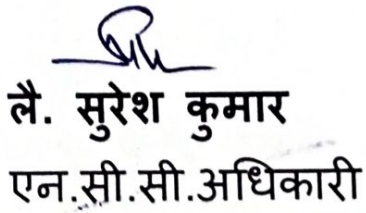 लै. सुरेश कुमार
एन.सी.सी.अधिकारी